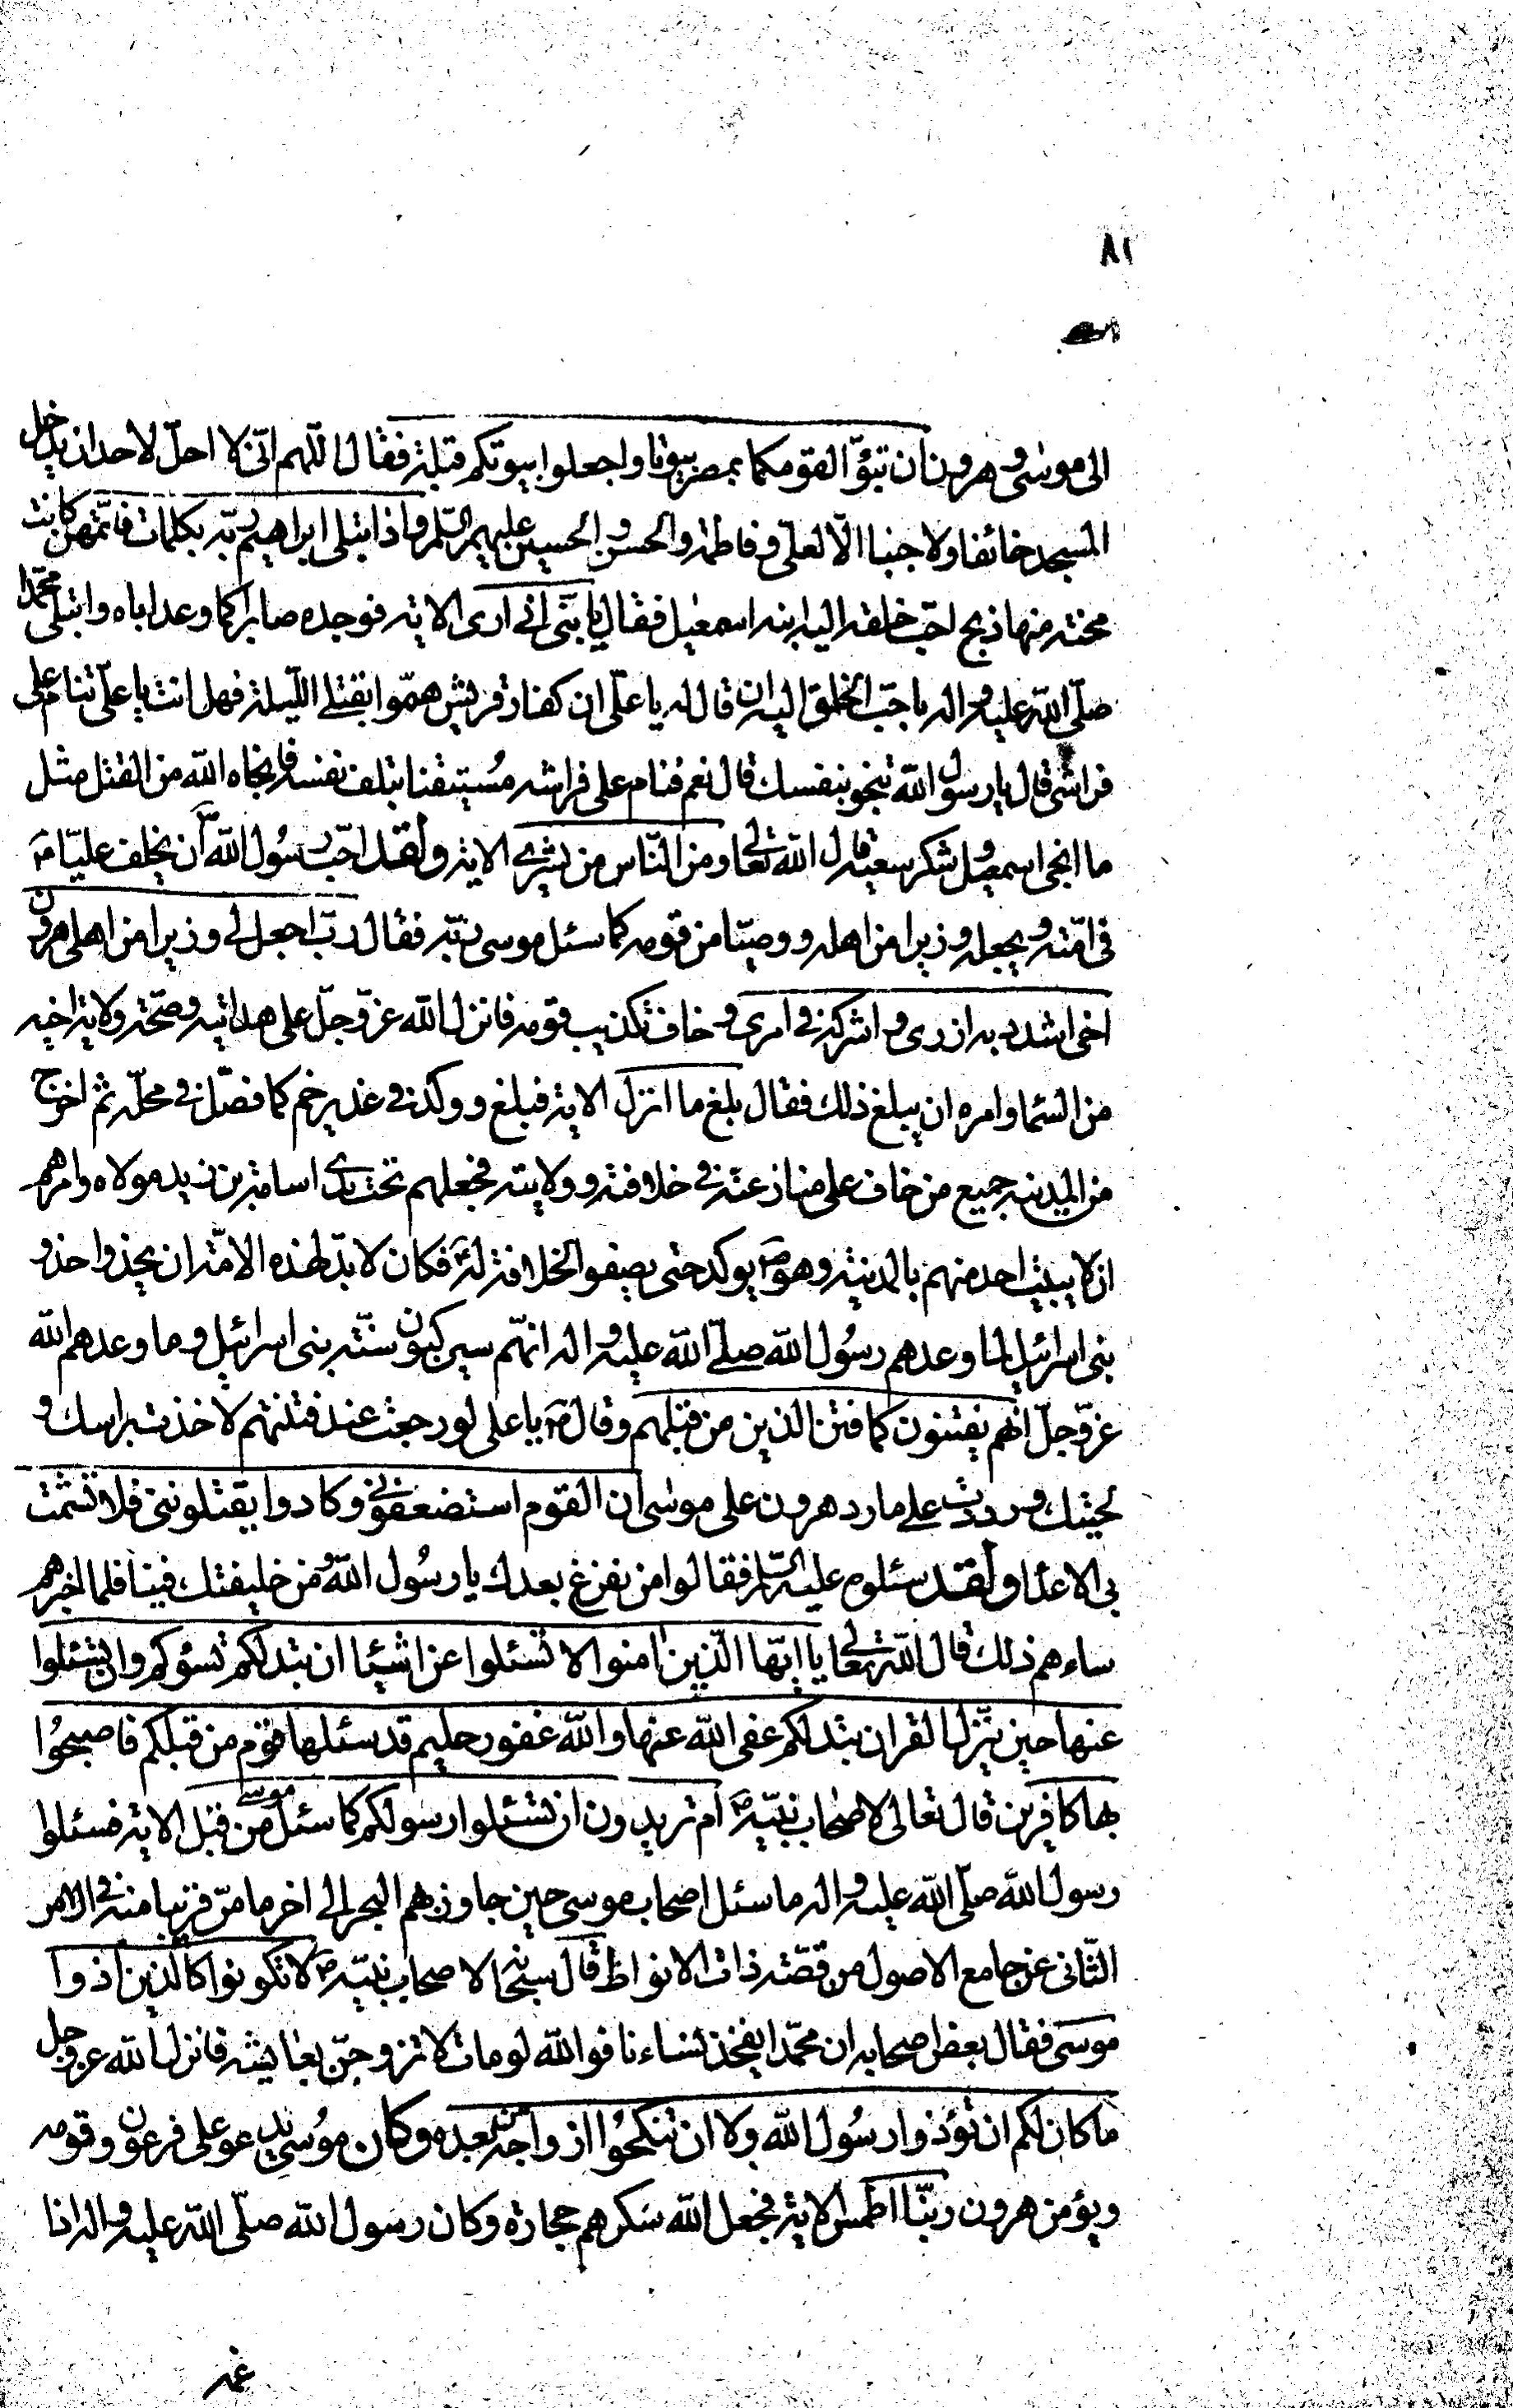 ٨١
الى موسى وهرون ان تبوّآ لقومكما بمصر بيوتا واجعلوا بيوتكم قبلة فقال اللّهم انّى لا احلّ لاحد ان يدخل
المسجد خائفا ولا جنبا الّا لعلىّ و فاطمة والحسن و الحسين عليهم السّلم واذ ابتلى ابراهيم ربّه بكلمات فاتمّهن كانت
محنته منها ذبح احبّ خلقه اليه ابنه اسمعيل فقال يا بنىّ انى ارى الاية فوجده صابرا كما وعد اباه وابتلى محمّدا
صلّى اللّه عليه واله باحبّ الخلق اليه ان قال له يا علىّ ان كفار قريش همّوا بقتلى اللّيلة فهل انت يا علىّ تنام على
فراشى قال يا رسول اللّه تنجو بنفسك قال نعم فنام على فراشه مستيقنا بتلف نفسه فانجاه اللّه من القتل مثل
ما انجى اسمعيل و شكر سعيه قال اللّه تعالى ومن النّاس من يشرى الاية ولقد احبّ رسول اللّه ص ان يخلف عليّا م
فى امّته و يجعله وزيرا من اهله ووصيّا من قومه كما سئل موسى ربّه فقال ربّ اجعل لى وزيرا من اهلى هرون
اخى اشدد به ازرى و اشركه فى امرى و خاف تكذيب قومه فانزل اللّه عزّوجلّ على هدايته وصحّة ولاية اخيه
من السّما وامره ان يبلغ ذلك فقال بلغ ما انزل الاية فبلغ ووكد فى غدير خم كما فصّل فى محلّه ثم اخرج
من المدينه جميع من خاف على منازعته فى خلافته وولايته فجعلهم تحت يدى اسامة بن زيد مولاه وامرهم
ان لا يبيت احد منهم بالمدينة وهو ص يوكد حتى يصفوا الخلافة له فكان لا بدّ لهذه الامّة ان يحذوا حذو
بنى اسرائيل لما وعدهم رسول اللّه صلّى اللّه عليه و اله انهّم سيركبون سنّة بنى اسرائيل و ما وعدهم اللّه
عزّوجلّ انهم يفتنون كما فتن الذين من قبلهم وقال م يا على لو رجعت عند فتنتهم لاخذت براسك و
لحيتك و رددت على ما رد هرون على موسى ان القوم استضعفونى وكادوا يقتلوننى فلا تشمت
بى الاعدا ولقد سئلوه عليه السّلم فقالوا من نفزع بعدك يا رسول اللّه ومن خليفتك فينا فلما اخبرهم
ساءهم ذلك قال اللّه تعالى يا ايّها الّذين امنوا لا تسئلوا عن اشيئا ان تبد لكم تسؤكم وان تسئلوا
عنها حين ينزل القران تبد لكم عفى اللّه عنها واللّه غفور حليم قد سئلها قوم من قبلكم فاصبحوا
بها كافرين قال تعالى لاصحاب نبيّه ص ام تريدون ان تسئلوا رسولكم كما سئل موسى من قبل الاية فسئلوا
رسول اللّه صلّى اللّه عليه و اله ما سئل اصحاب موسى حين جاوز بهم البحر الى اخر ما مرّ قريبا منه فى الامر
الثّانى عن جامع الاصول من قصّة ذات الانواط قال سبحانه لاصحاب نبيّه ص لا تكونوا كالّذين اذوا
موسى فقال بعض اصحابه ان محمّدا يفخذ نساءنا فو اللّه لو مات لا تزوجنّ بعايشه فانزل اللّه عزوجل
ما كان لكم ان تؤذوا رسول اللّه ولا ان تنكحوا ازواجه من بعده وكان موسى يدعو على فرعون وقومه
ويؤمن هرون ربّنا اطمس الاية فجعل اللّه سكرهم حجارة وكان رسول اللّه صلّى اللّه عليه واله اذا